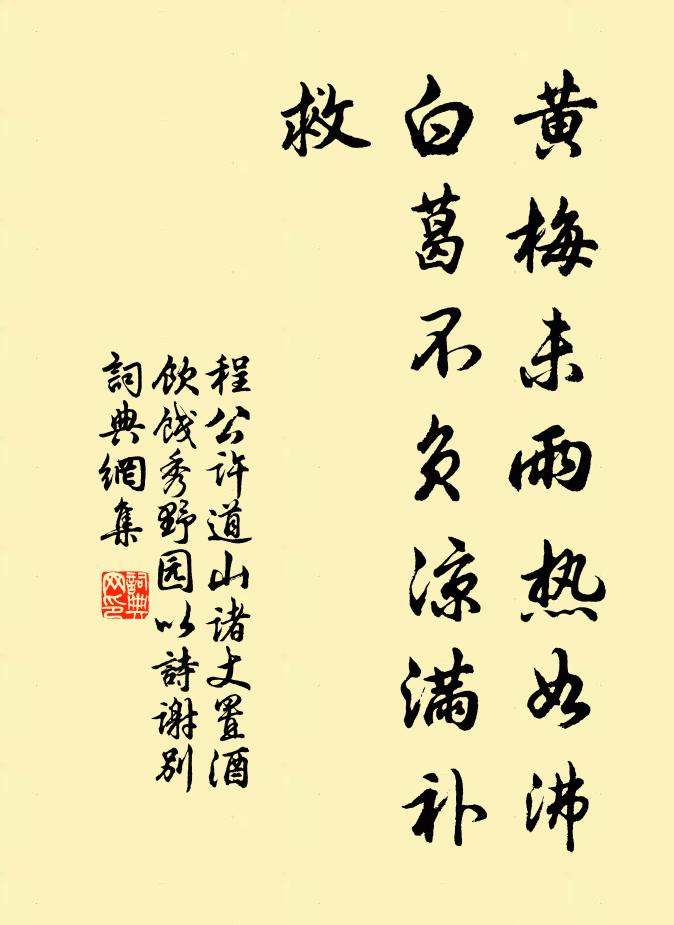 黄梅未雨热如沸
白葛不负凉满补
救
程公许道山诸丈置酒
饮饯秀野园以詩谢别
詞典網集
詞典
网印